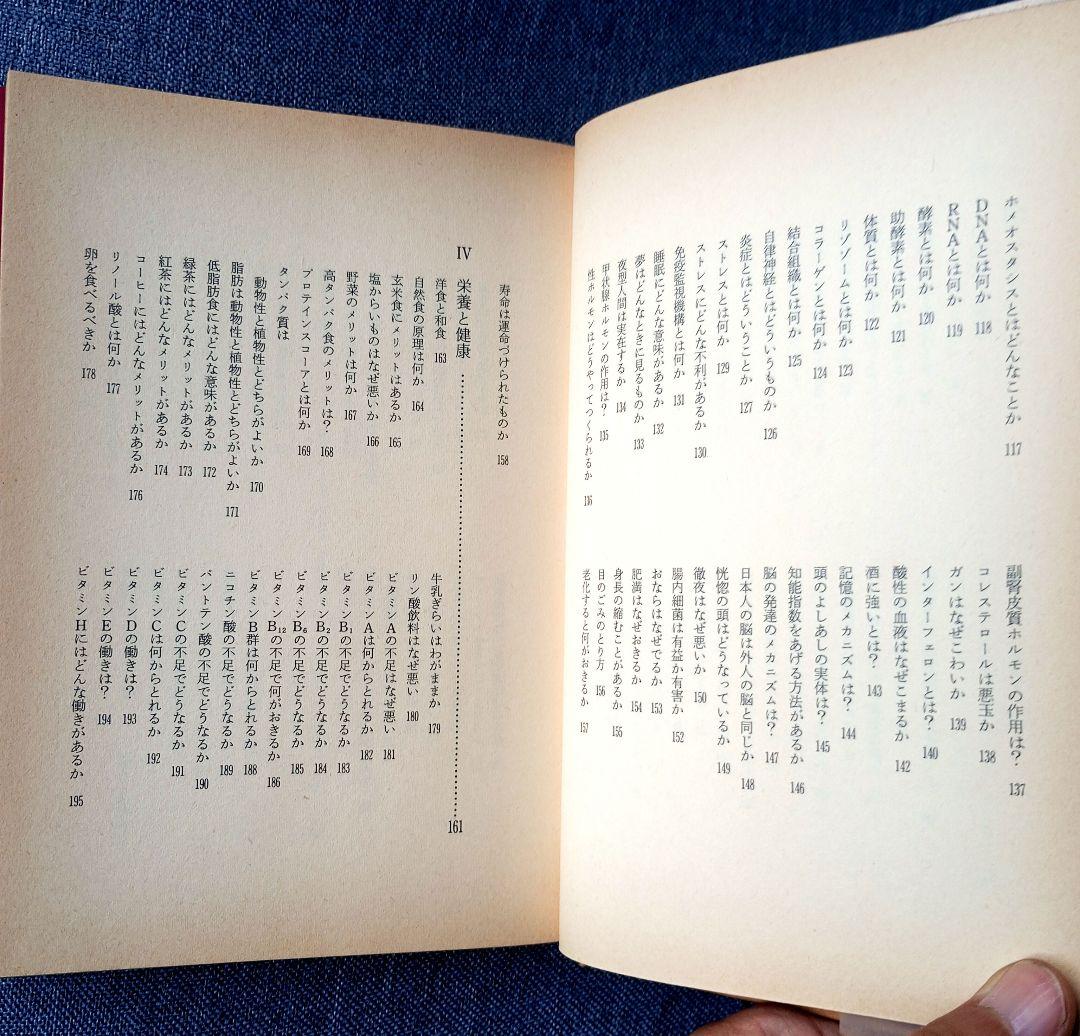 ホメオスタシスとはどんなことか 117
DNAとは何か 118
RNAとは何か 119
酵素とは何か 120
助酵素とは何か 121
体質とは何か 122
リゾゾームとは何か 123
コラーゲンとは何か 124
結合組織とは何か 125
自律神経とはどういうものか 126
炎症とはどういうことか 127
ストレスとは何か 129
ストレスにどんな不利があるか 130
免疫監視機構とは何か 131
睡眠にどんな意味があるか 132
夢はどんなときに見るものか 133
夜型人間は実在するか 134
甲状腺ホルモンの作用は? 135
性ホルモンはどうやってつくられるか 136
副腎皮質ホルモンの作用は? 137
コレステロールは悪玉か 138
ガンはなぜこわいか 139
インターフェロンとは? 140
酸性の血液はなぜこまるか 142
酒に強いとは? 143
記憶のメカニズムは? 144
頭のよしあしの実体は? 145
知能指数をあげる方法があるか 146
脳の発達のメカニズムは? 147
日本人の脳は外人の脳と同じか 148
恍惚の頭はどうなっているか 149
徹夜はなぜ悪いか 150
腸内細菌は有益か有害か 152
おならはなぜでるか 153
肥満はなぜおきるか 154
身長の縮むことがあるか 155
目のごみのとり方 156
老化すると何がおきるか 157
寿命は運命づけられたものか 158
IV 栄養と健康 ……………………………… 161
洋食と和食 163
自然食の原理は何か 164
玄米食にメリットはあるか 165
塩からいものはなぜ悪いか 166
野菜のメリットは何か 167
高タンパク食のメリットは? 168
プロテインスコーアとは何か 169
タンパク質は
動物性と植物性とどちらがよいか 170
脂肪は動物性と植物性とどちらがよいか 171
低脂肪食にはどんな意味があるか 172
緑茶にはどんなメリットがあるか 173
紅茶にはどんなメリットがあるか 174
コーヒーにはどんなメリットがあるか 176
リノール酸とは何か 177
卵を食べるべきか 178
牛乳ぎらいはわがままか 179
リン酸飲料はなぜ悪い 180
ビタミンAの不足はなぜ悪い 181
ビタミンAは何からとれるか 182
ビタミンB₁の不足でどうなるか 183
ビタミンB₂の不足でどうなるか 184
ビタミンB₆の不足でどうなるか 185
ビタミンB₁₂の不足で何がおきるか 186
ビタミンB群は何からとれるか 188
ニコチン酸の不足でどうなるか 189
パントテン酸の不足でどうなるか 190
ビタミンCの不足でどうなるか 191
ビタミンCは何からとれるか 192
ビタミンDの働きは? 193
ビタミンEの働きは? 194
ビタミンHにはどんな働きがあるか 195